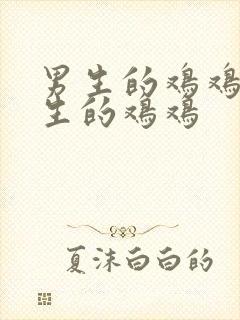 男生的鸡鸡
生的鸡鸡
夏沫白白的